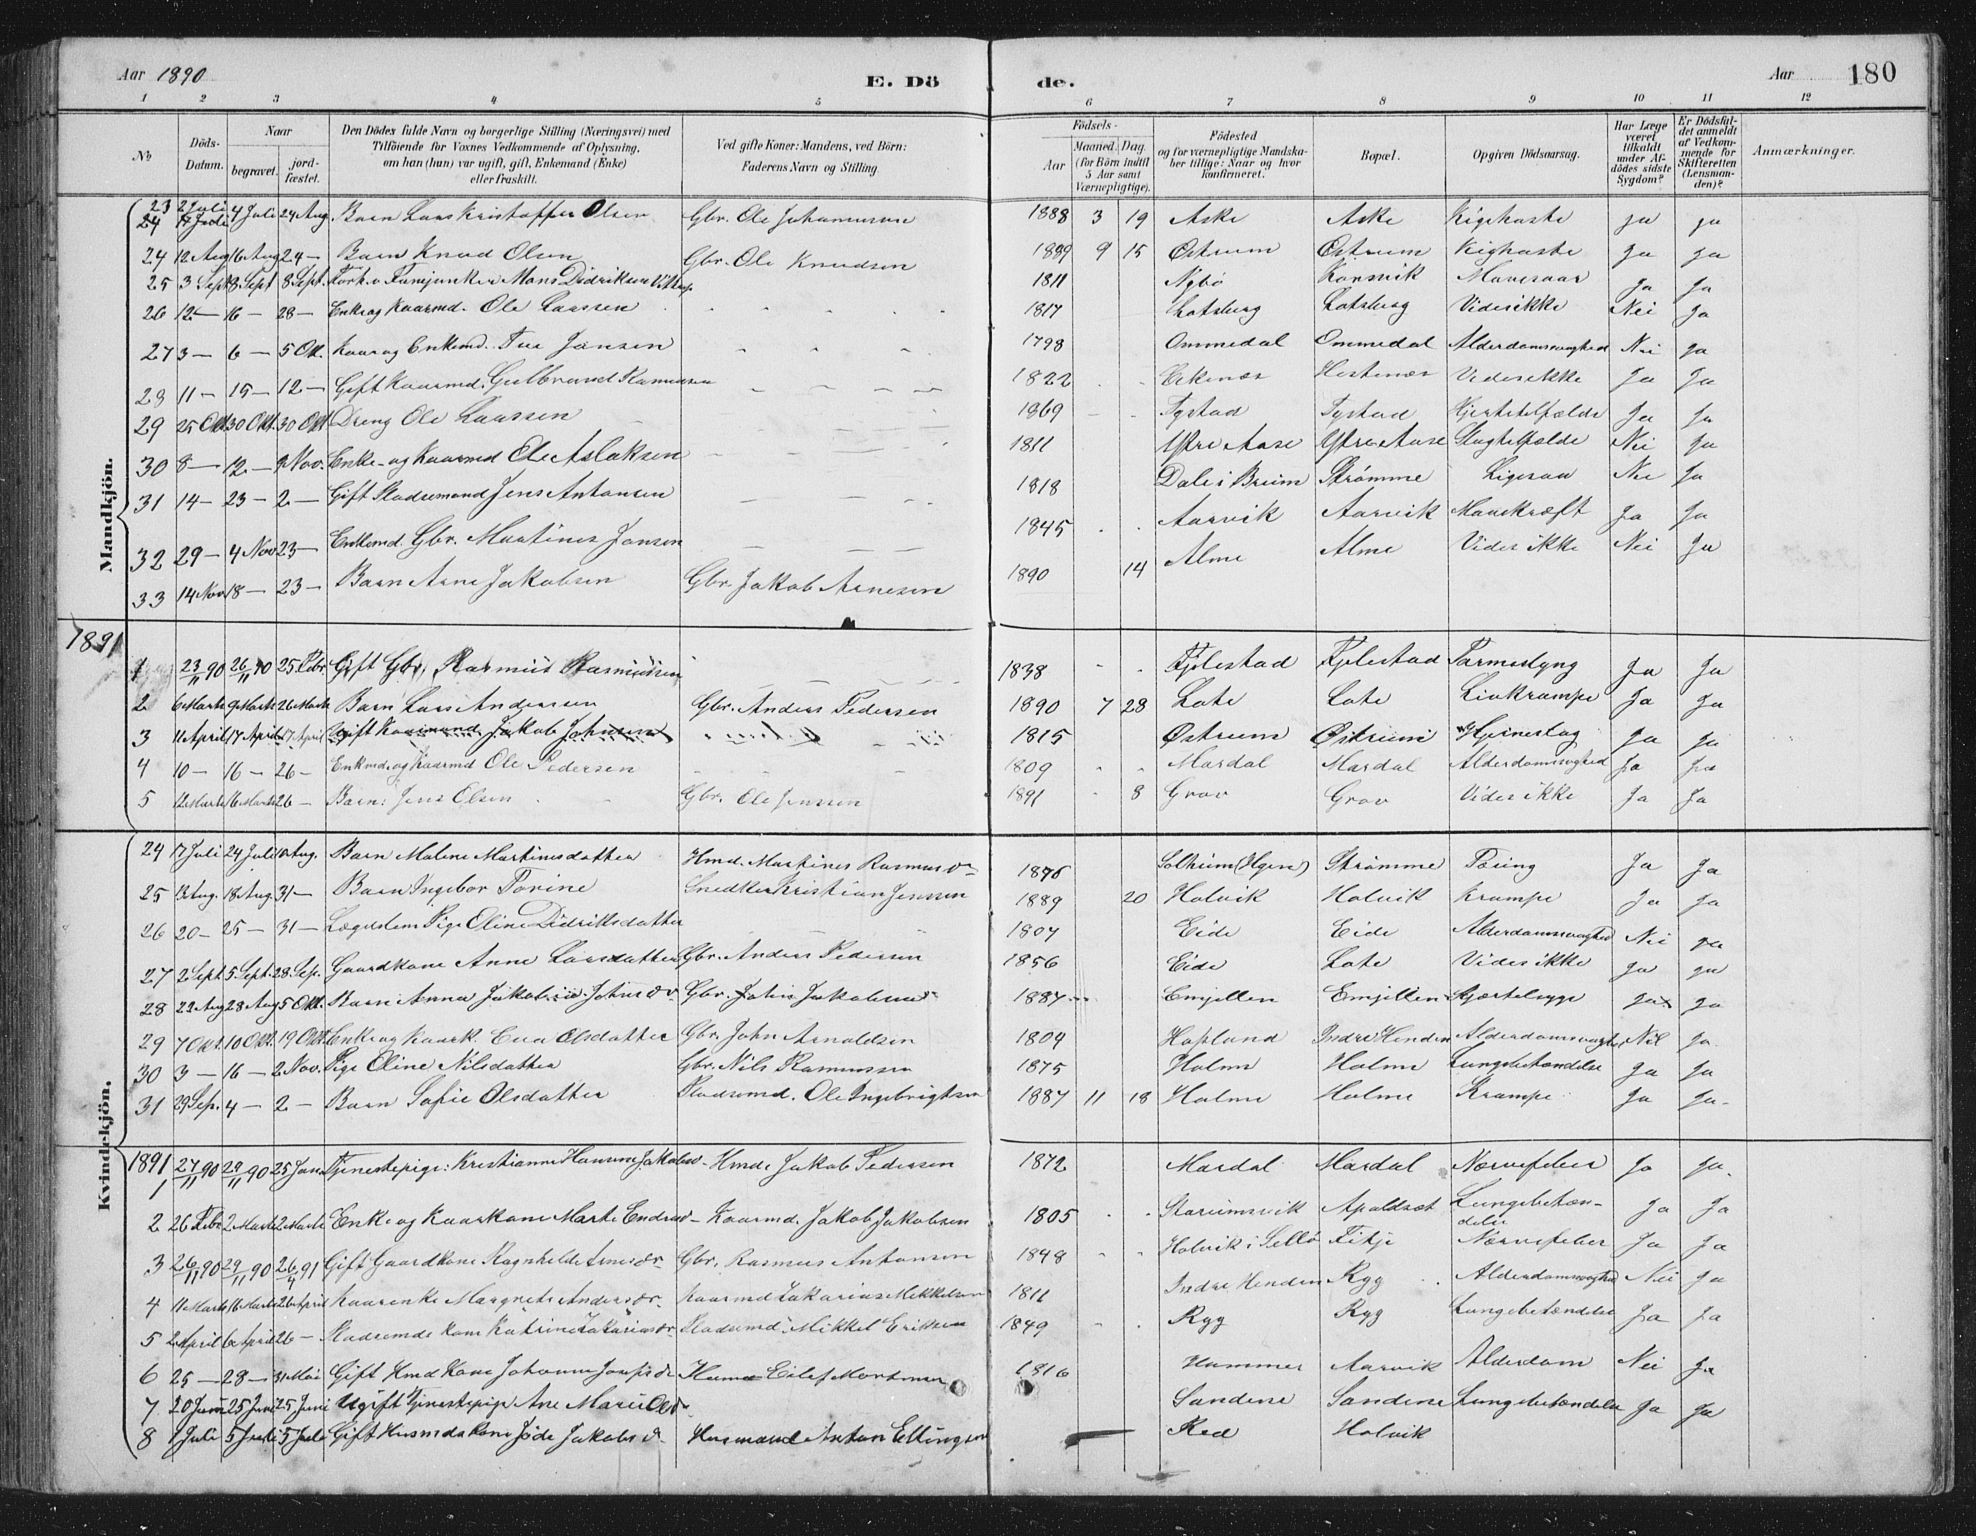 Aar 1890
E. Dö
de.
Aar
180
1 2 3 4 5 6 7 8 9 10 11 12
No
Döds-Datum.
Naar
begravet.
jord-fæstet.
Den Dödes fulde Navn og borgerlige Stilling (Næringsvei) med Tilföiende for Voxnes Vedkommende af Oplysning, om han (hun) var ugift, gift, Enkemand (Enke) eller fraskilt.
Ved gifte Koner: Mandens, ved Börn: Faderens Navn og Stilling.
Födsels-
Aar
Maaned. Dag.
(for Börn indtil 5 Aar samt Værnepligtige).
Födested og for værnepligtige Mandskaber tillige: Naar og hvor konfirmeret.
Bopæl.
Opgiven Dödsaarsag.
Har Læge været tilkaldt under Afdödes sidste Sygdom?
Er Dödsfaldet anmeldt af Vedkommende for Skifteretten (Lensmanden)?
Anmærkninger.
Mandkjön.
23 2 Juli 4 Juli 24 Aug Barn Lars Kristoffer Olsen Gbr. Ole Johannesen 1888 3 19 Aske Aske Kighoste ja ja
24 12 Aug 16 Aug 24 — Barn Knud Olsen Gbr. Ole Knudsen 1889 9 15 Østrum Østrum Kighoste ja ja
25 3 Sept 8 Sept 8 Sept. Mons Didriksen 1811 Nybø Mavesaar Ja Ja
26 12 — 16 — 28 — Enke og Kaarmd. Ole Larsen 1817 Lotsberg Lotsberg Vides ikke Nei Ja
27 3 — 6 — 5 Okt. Kaar og Enkemd. Jansen 1798 Ommedal Ommedal Alderdomssvaghed Nei Ja
28 11 — 15 — 12 — Gift Kaarmd. Gulbrand Rasmussen 1822 Hestenes Vides ikke Ja Ja
29 25 Okt 30 Okt. 30 Okt Dreng Ole Larssen 1869 Tystad Tystad Ja Ja
30 8 — 12 — 9 Nov. Enke- og Kaarmd Ole Aslaksen 1811 Ytre Aase Ytre Aase Slagtilfælde Nei Ja
31 14 — 23 — 2 — Gift Pladsemand Jens Antonsen 1818 Dale i Breim Strømme Ligesaa Nei Ja
32 29 — 4 Nov 23 — Enkemd. Gbr. Martines Jansen 1845 Aarvik Aarvik Mavekræft Ja Ja
Alme Alme Vides ikke Nei Ja
33 14 Nov 18 — 23 — Barn Arne Jakobsen Gbr. Jakob Arnesen 1890 14
1891
1 23/11 90 26/11 90 25 Febr Gift Gbr. Rasmus Rasmussen 1838 Fjelestad Fjelestad Tarmeslyng Ja Ja
2 6 Marts 9 Marts 26 Marts Barn Lars Andersen Gbr. Anders Pedersen 1890 7 28 Lote Lote Livkrampe Ja Ja
3 11 April 17 April 17 April Gift Kaarmand Jakob Johnsen 1815 Østrum Østrum Hjerneslag Ja Ja
4 10 — 16 — 26 — Enkmd og Kaarmd Ole Pedersen 1809 Mardal Mardal Alderdomssvaghed Ja Ja
5 12 Marts 16 Marts 26 — Barn: Jens Olsen Gbr. Ole Jenssen 1891 8 Grov Grov Vides ikke Ja Ja
Kvindekjön.
24 17 Juli 24 Juli 10 Aug. Barn Malene Martinesdatter Hmd. Martines Rasmus 1876 Solheim (Hyen) Strømme Tæring Ja Ja
25 13 Aug. 18 Aug. 31 — Barn Ingebor Torine Snedker Kristian Jenssen 1889 20 Holvik Holvik Krampe Ja Ja
26 20 — 25 — 31 — Lægdslem Pige Oline Didriksdatter 1807 Eide Eide Alderdomssvaghed Nei ja
27 2 Sept 5 Sept. 28 Sep. Gaardkone Anne Larsdatter Gbr. Anders Pedersen 1856 Eide Lote Vides ikke ja ja
28 22 Aug 28 Aug 5 Okt. Barn Anna Jakobine Johnsdr Gbr. John Jakobsen 1887 Emjellen Emjellen Hjærtesyge ja ja
29 7 Okt. 10 Okt. 19 Okt Enke og Kaark. Eva Olsdatter Gbr. John Arnoldsen 1804 Hopland Indre Henden Alderdomssvaghed Nei Ja
30 3 — 16 — 2 Nov. Pige Oline Nilsdatter Gbr. Nils Rasmussen 1875 Holme Holme Lungebetændelse Ja Ja
31 29 Sep. 4 — 2 — Barn Sofie Olsdatter Pladsemd. Ole Ingebrigtsen 1887 11 18 Holme Holme Krampe Ja Ja
1891
1 27/11 90 29/11 90 25 Janu Tjenestepige: Kristianne Hansine Jakobsd Hmd. Jakob Pedersen 1872 Mardal Mardal Nervefeber Ja Ja
2 26 Febr 2 Marts 2 Marts Enke og Kaarkone Marte Endresd Kaarmd. Jakob Jakobsen 1805 Starumsvik Apaldset Lungebetændelse Ja Ja
3 26/11 90 29/11 90 26/4 91 Gift Gaardkone Ragnhilde Arnesdr Gbr. Rasmus Antonsen 1848 Holvik i Sellø Fitje Nervefeber Ja Ja
4 11 Marts 16 Marts 26 April Kaarenke Margrete Andersdr Kaarmd Sakarias Mikkelsen 1811 Indre Henden Ryg Alderdomssvaghed Nei Ja
5 2 April 6 April 26 — Pladsemds Kone Katrine Sakariasdr Pladsemd: Mikkel Eriksen 1849 Ryg Ryg Lungebetændelse Ja Ja
6 25 — 28 — 31 Mai Gift Hmd Kone Johanne Josefsd Eilef Mortensen 1816 Hammer Aarvik Alderdom Nei Ja
7 20 Juni 25 Juni 25 Juni Ugift Tjenestepige Ane Marie Olsd Sandene Sandene Lungebetændelse Ja Ja
8 1 Juli 5 Juli 5 Juli Gift Husmdskone Jakobsd. Husmand Anton Ellingsen Red Holvik